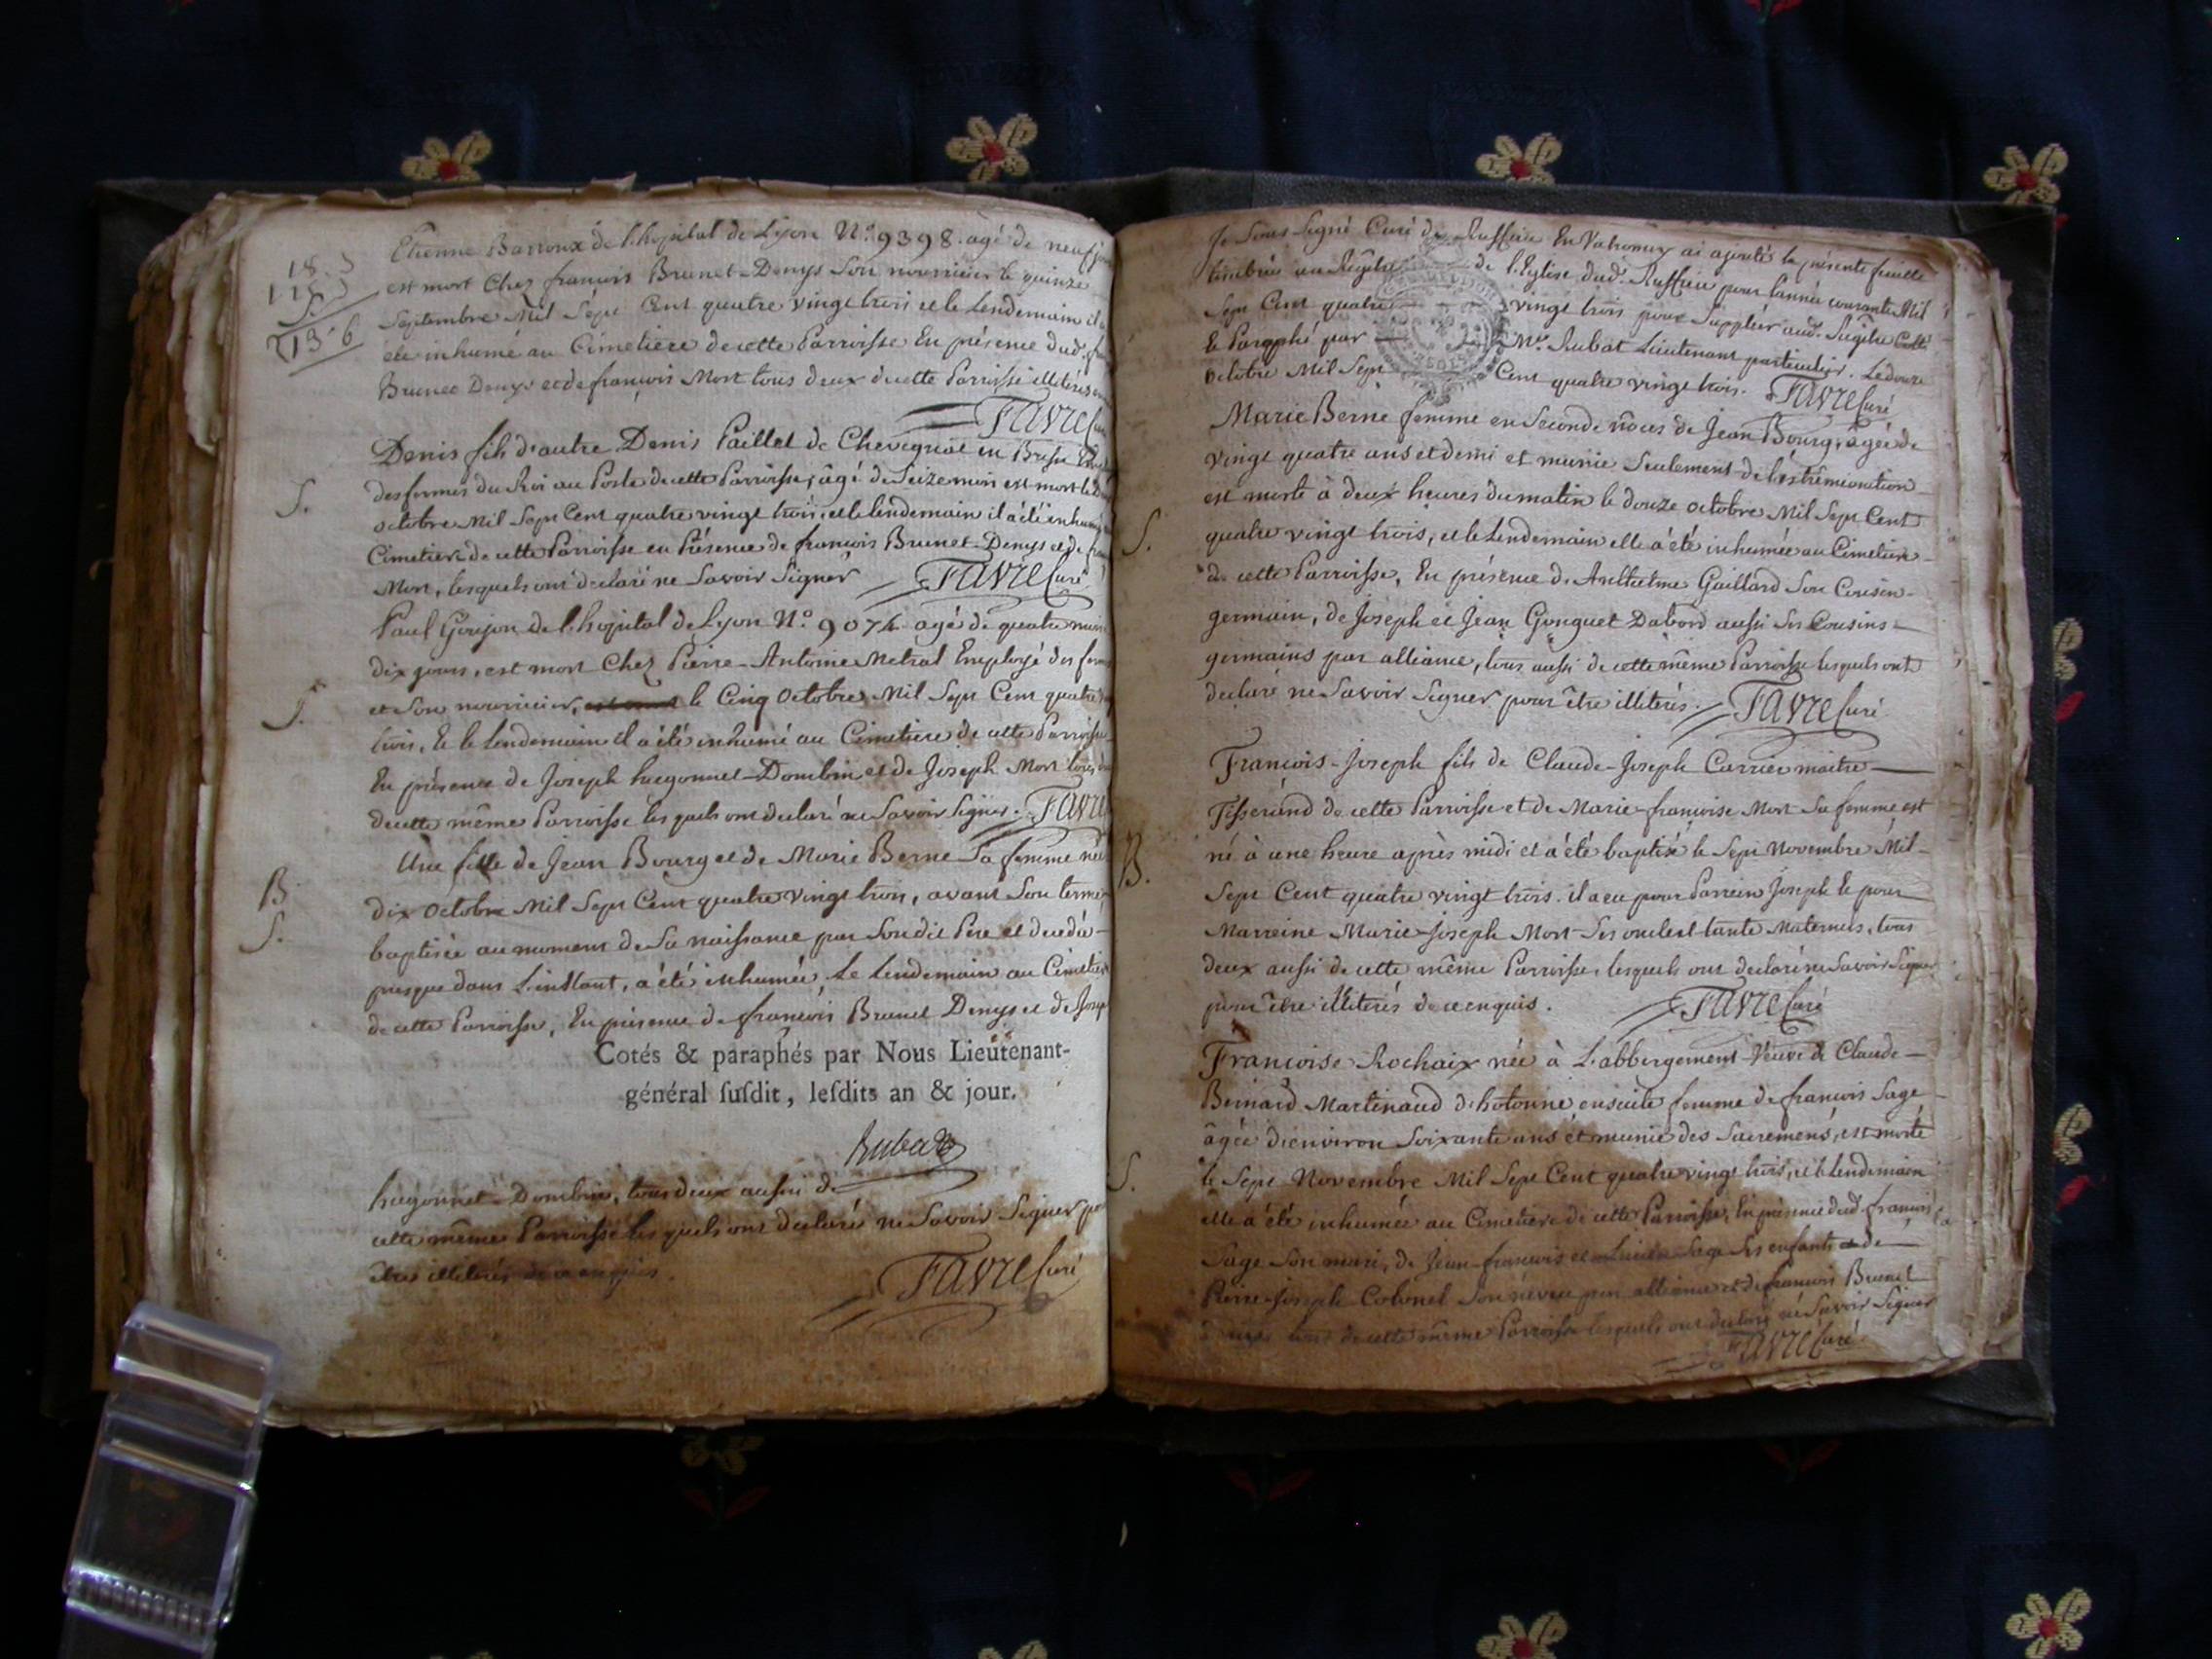 Etienne Barroux de l'hopital de Lyon N.o 9398. agé de neuf
est mort Chez francois Brunet-Denys Son nourricier le quinze
Septembre Mil Sept Cent quatre vingt trois et le Lendemain il
été inhumé au Cimetiere de cette Parroisse En présence dud.
Brunet Denys et de francois Mort tous deux de cette Parroisse illiterés
FAVRE
Denis fils d'autre Denis Paillet de en Bresse
des fermes du Roi au Poste de cette Parroisse, âgé de Seize mois est mort le
S.
octobre Mil Sept Cent quatre vingt trois, et le lendemain il a été inhumé
Cimetiere de cette Parroisse en Présence de francois Brunet-Denys et de
Mort, lesquels ont declaré ne Savoir Signer FAVRE Curé
Paul Goujon de l'hopital de Lyon N.o 9074 agé de quatre mois
dix jours, est mort Chez Pierre-Antoine Metral Employé des
S.
et Son nourricier, le Cinq Octobre Mil Sept Cent quatre
trois, Et le Lendemain il a été inhumé au Cimetiere de cette Parroisse
En présence de Joseph hugonnet-Dombin et de Joseph Mort tous
de cette même Parroisse lesquels ont declaré ne Savoir Signer. FAVRE
Une fille de Jean Bourg et de Marie Berne Sa femme née
B.
dix Octobre Mil Sept Cent quatre vingt trois, avant Son terme
S.
baptisée au moment de Sa naissance par Son dit Pere et decedé-
presque dans L'instant, a été inhumée, Le Lendemain au Cimetiere
de cette Parroisse, En présence de francois Brunet Denys et de
Cotés & paraphés par Nous Lieutenant-
général ſuſdit, leſdits an & jour.
Rubat
hugonnet-Dombin, tous deux aussi de
cette même Parroisse lesquels ont declaré ne Savoir Signer
être illiterés de ce enquis.
FAVRE Curé
Je Sous-Signé Curé de Ruffieu En Valromey ai ajouté la présente feuille
timbrée au Regître de l'Eglise dud.t Ruffieu pour l'année courante Mil
Sept Cent quatre vingt trois pour Suppléer aud.t Regître Coté
& Paraphé par Mr. Rubat Lieutenant particulier. Le douze
Octobre Mil Sept Cent quatre vingt trois. FAVRE Curé
Marie Berne femme en Seconde nôces de Jean Bourg, âgée de
vingt quatre ans et demi et munie Seulement de l'extrêmeonction
est morte à deux heures du matin le douze octobre Mil Sept Cent
S.
quatre vingt trois, et le Lendemain elle a été inhumée au Cimetiere
de cette Parroisse, En présence d'Anthelme Gaillard Son Cousin-
germain, de Joseph et Jean Gonguet Dabord aussi Ses Cousins-
germains par alliance, tous aussi de cette même Parroisse lesquels ont
declaré ne Savoir Signer pour être illiterés. FAVRE Curé
Francois-Joseph fils de Claude-Joseph Carrier maitre
Tisserand de cette Parroisse et de Marie-francoise Mort Sa femme est
né à une heure après midi et a été baptisé le Sept Novembre Mil-
B.
Sept Cent quatre vingt trois. il a eu pour Parrein Joseph Et pour
Marreine Marie-Joseph Mort Ses oncle et tante Maternels, tous
deux aussi de cette même Parroisse, lesquels ont declaré ne Savoir Signer
pour être illiterés de ce enquis. FAVRE Curé
Francoise Rochaix née à L'abbergement Veuve de Claude-
Bernard Martinaud d'hotonne ensuite femme de francois Sage
âgée d'environ Soixante ans et munie des Sacremens, est morte
S.
le Sept Novembre Mil Sept Cent quatre vingt trois, et le Lendemain
elle a été inhumée au Cimetiere de cette Parroisse, En présence dud.t francois
Sage Son mari, de Jean-francois et Sage Ses enfants de
Pierre-Joseph Colonel Son neveu par alliance et de francois Brunet
tous de cette même Parroisse lesquels ont declaré ne Savoir Signer
FAVRE Curé